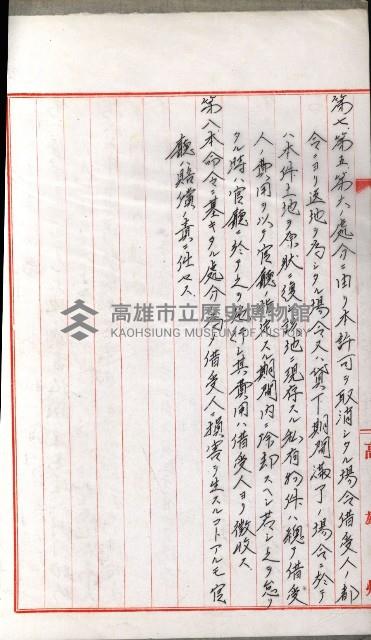 第七、第五第六ノ處分ニ由リ本許可ヲ取消シタル場合借受人ノ都
合ニヨリ返地ヲ為シタル場合又ハ貸下期間滿了ノ場合ニ於テ
ハ本件土地ヲ原狀ニ復シ該地ニ現存スル私有物件ハ總テ借受
人ノ費用ヲ以テ官廳指定スル期間内ニ除却スヘシ若シ之ヲ怠リ
タル時ハ官廳ニ於テ之ヲ處印シ其費用ハ借受人ヨリ徴收ス
第八、本命令ニ基キタル處分ノ為借受人ニ損害ヲ生スルコトアルモ官
廳ハ賠償ノ責ニ任セス
高雄州
高雄市立歷史博物館
KAOHSIUNG MUSEUM OF HISTORY